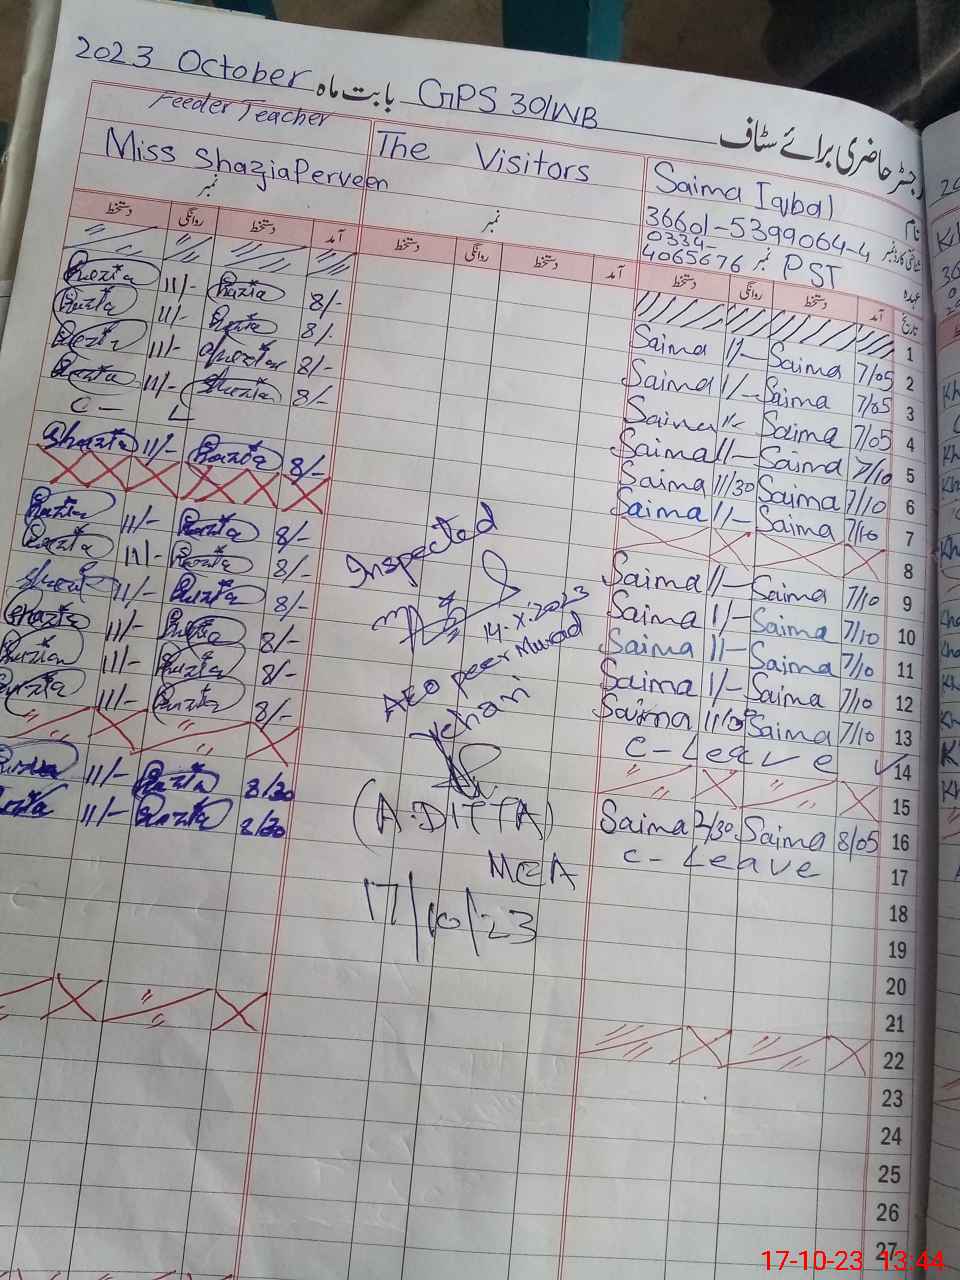 2023 October بابت ماہ GPS 30/WB رجسٹر حاضری برائے سٹاف
Feeder Teacher
Miss Shazia Perveen
نمبر
دستخط روانگی دستخط آمد
Shazia 11/- Shazia 8/-
Shazia 11/- Shazia 8/-
Shazia 11/- Shazia 8/-
Shazia 11/- Shazia 8/-
C - L
Shazia 11/- Shazia 8/-
Shazia 11/- Shazia 8/-
Shazia 11/- Shazia 8/-
Shazia 11/- Shazia 8/-
Shazia 11/- Shazia 8/-
Shazia 11/- Shazia 8/-
Shazia 11/- Shazia 8/-
Shazia 11/- Shazia 8/30
Shazia 11/- Shazia 8/30
The Visitors
نمبر
دستخط روانگی دستخط آمد
Inspected
14-X-2023
AEO peer Murad
(A.DITTA)
MEA
17/10/23
Saima Iqbal نام
36601-5399064-4 شناختی کارڈ نمبر
0334-
4065676 نمبر PST عہدہ
دستخط روانگی دستخط آمد تاریخ
1
Saima 1/- Saima 7/05 2
Saima 1/- Saima 7/05 3
Saima 1/- Saima 7/05 4
Saima 11/- Saima 7/10 5
Saima 11/30 Saima 7/10 6
Saima 1/- Saima 7/10 7
8
Saima 1/- Saima 7/10 9
Saima 1/- Saima 7/10 10
Saima 1/- Saima 7/10 11
Saima 1/- Saima 7/10 12
Saima Saima 7/10 13
C - Leave 14
15
Saima 2/30 Saima 8/05 16
C - Leave 17
18
19
20
21
22
23
24
25
26
27
17-10-23 13:44